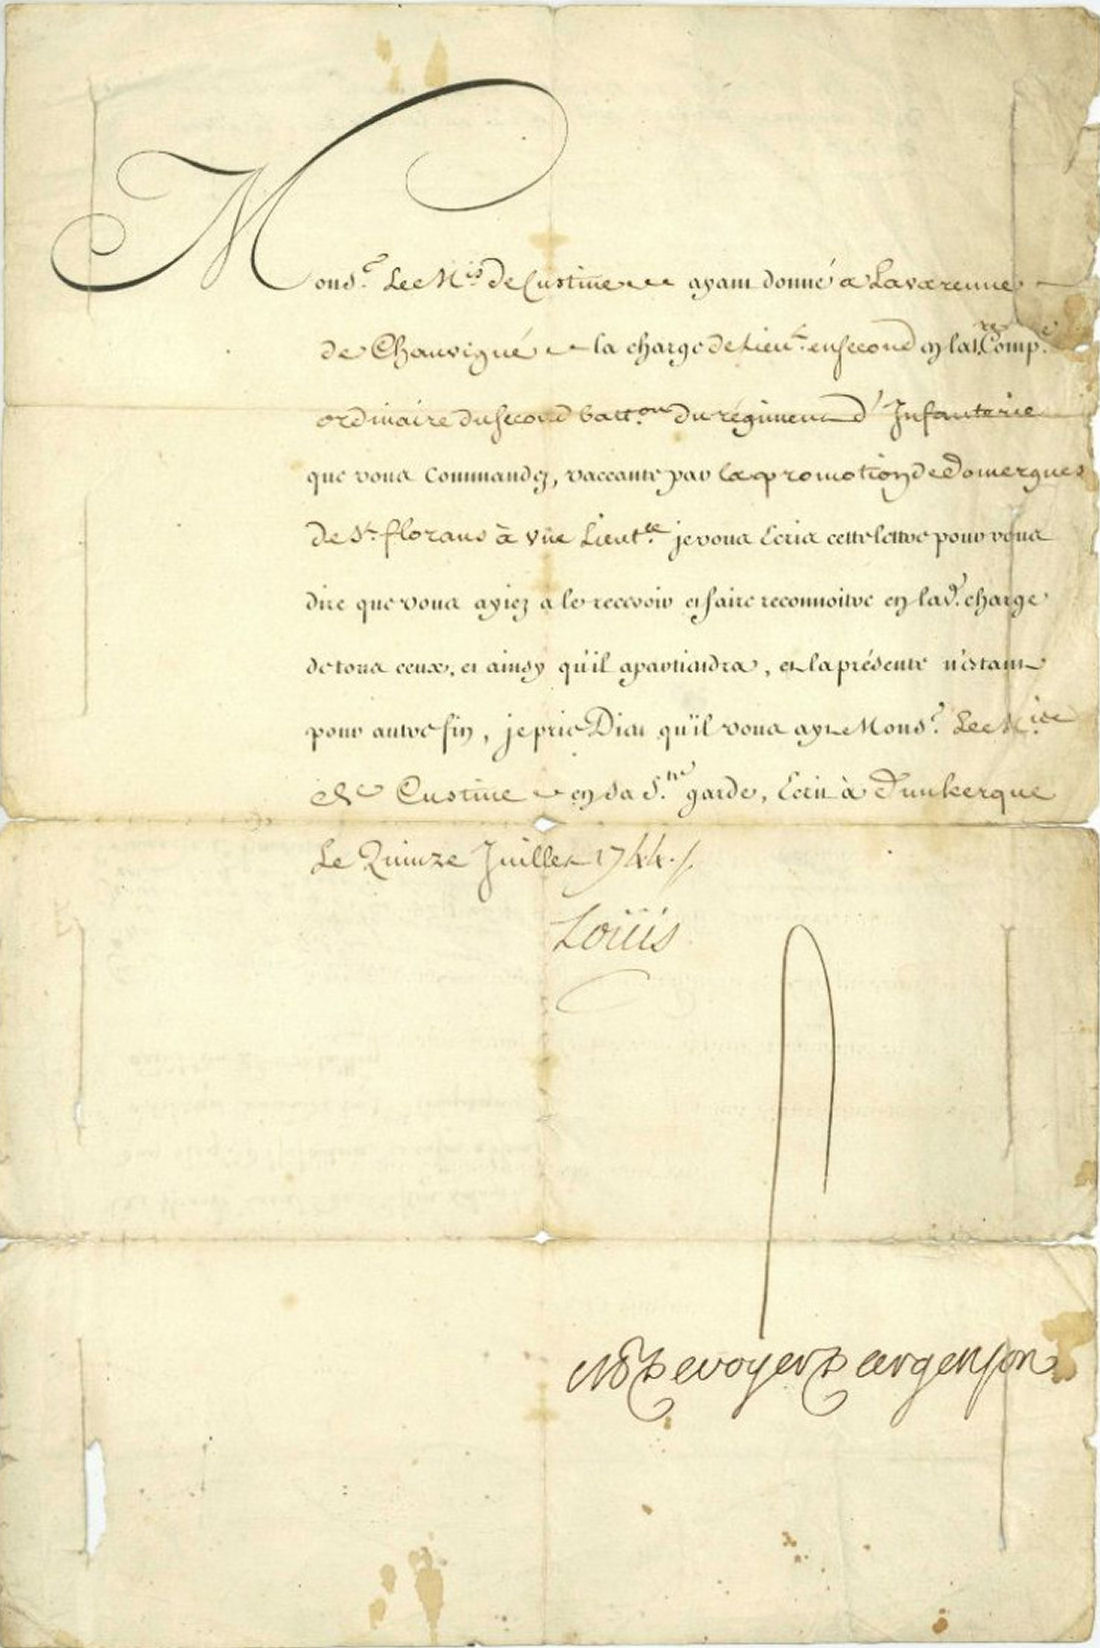 Mons.r Le M.is de Custine ayant donné a Lavarenne
de Chauvigné la charge de Lieut.t en second en la 1.re Comp.e
ordinaire du second batt.on du régiment d'Infanterie
que vous commandez, vaccante par la promotion de Domergues
de S.t florans à une Lieut.ce je vous Ecris cette lettre pour vous
dire que vous ayiez a le recevoir et faire reconnoitre en lad.e charge
de tous ceux, et ainsy qu'il apartiendra, et la présente n'estant
pour autre fin, je prie Dieu qu'il vous ayt Mons.r Le M.is de
Custine en sa S.te garde, Ecrit à Dunkerque
Le Quinze Juillet 1744./.
Louis
M P de voyer D'argenson